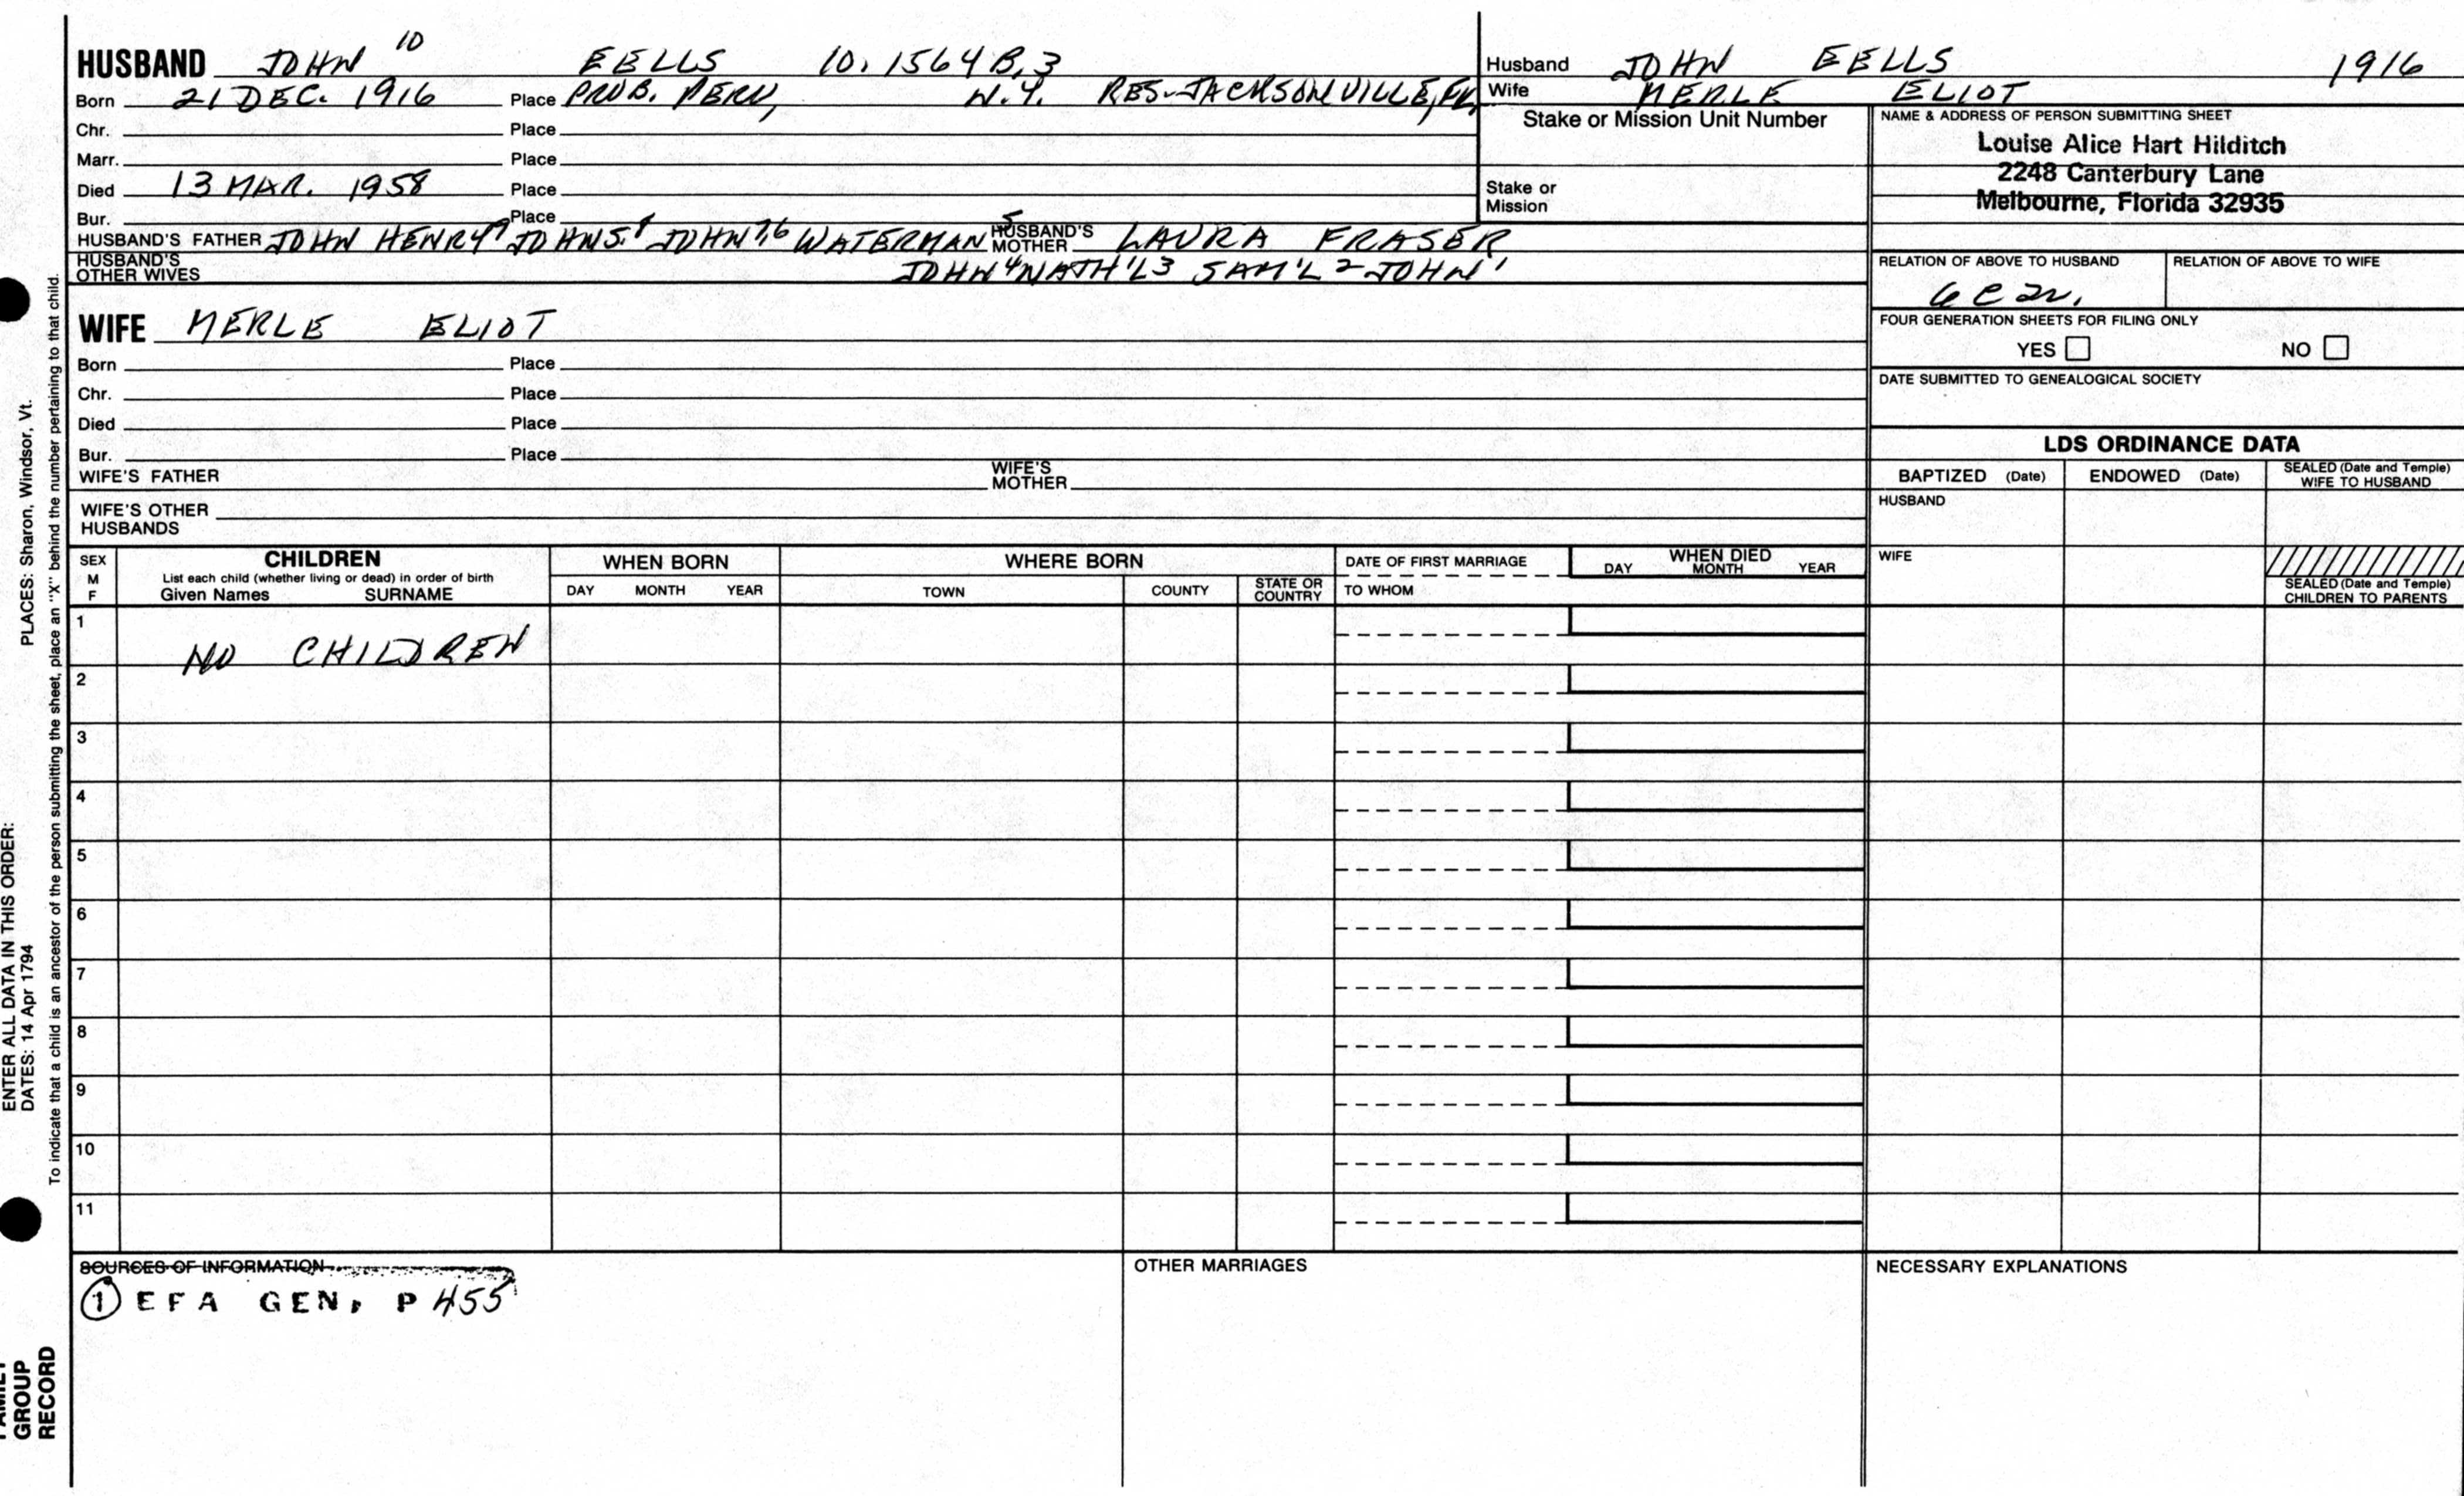 HUSBAND JOHN 10 EELLS 10.1564B.3
Born 21 DEC. 1916 Place PROB. PERU, N.Y. RES-JACKSONVILLE, FL
Chr. Place
Marr. Place
Died 13 MAR. 1958 Place
Bur. Place
HUSBAND'S FATHER JOHN HENRY9 JOHN S.8 JOHN7,6 WATERMAN5 HUSBAND'S MOTHER LAURA FRASER
HUSBAND'S OTHER WIVES JOHN4 NATH'L3 SAM'L2 JOHN1
Husband JOHN EELLS 1916
Wife MERLE ELIOT
Stake or Mission Unit Number
Stake or
Mission
NAME & ADDRESS OF PERSON SUBMITTING SHEET
Louise Alice Hart Hilditch
2248 Canterbury Lane
Melbourne, Florida 32935
RELATION OF ABOVE TO HUSBAND RELATION OF ABOVE TO WIFE
FOUR GENERATION SHEETS FOR FILING ONLY
YES NO
DATE SUBMITTED TO GENEALOGICAL SOCIETY
WIFE MERLE ELIOT
Born Place
Chr. Place
Died Place
Bur. Place
WIFE'S FATHER WIFE'S MOTHER
WIFE'S OTHER
HUSBANDS
LDS ORDINANCE DATA
BAPTIZED (Date) ENDOWED (Date) SEALED (Date and Temple) WIFE TO HUSBAND
HUSBAND
WIFE
SEALED (Date and Temple)
CHILDREN TO PARENTS
SEX M F CHILDREN WHEN BORN WHERE BORN DATE OF FIRST MARRIAGE WHEN DIED
List each child (whether living or dead) in order of birth
Given Names SURNAME DAY MONTH YEAR TOWN COUNTY STATE OR COUNTRY TO WHOM DAY MONTH YEAR
1 NO CHILDREN
2
3
4
5
6
7
8
9
10
11
SOURCES OF INFORMATION OTHER MARRIAGES NECESSARY EXPLANATIONS
1 EFA GEN, P 455
PLACES: Sharon, Windsor, Vt.
ENTER ALL DATA IN THIS ORDER:
DATES: 14 Apr 1794
To indicate that a child is an ancestor of the person submitting the sheet, place an "X" behind the number pertaining to that child.
FAMILY
GROUP
RECORD